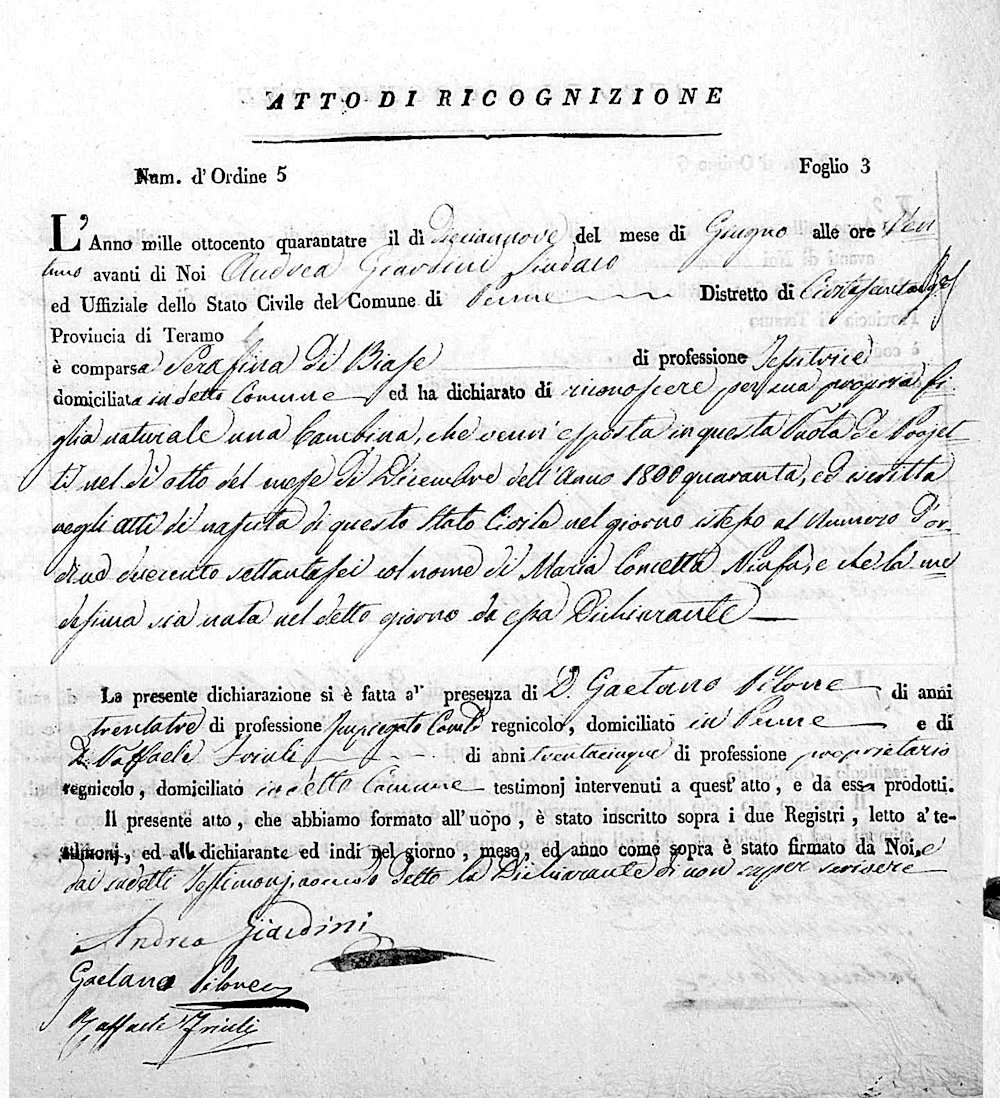 ATTO DI RICOGNIZIONE
Num. d'Ordine 5 Foglio 3
L'Anno mille ottocento quarantatre il dì diciannove del mese di Giugno alle ore Ven
tuno avanti di Noi Andrea Giardini Sindaco
ed Uffiziale dello Stato Civile del Comune di Penne Distretto di Civitasantangelo
Provincia di Teramo
è comparsa Serafina di Biase di professione Tessitrice
domiciliata in detto Comune ed ha dichiarato di riconoscere per sua propria fi-
glia naturale una Bambina, che venne esposta in questa Ruota de Projet-
ti nel dì otto del mese di Dicembre dell'Anno 1800 quaranta, ed iscritta
negli atti di nascita di questo Stato Civile nel giorno istesso al Numero d'or-
dine duecento settantasei col nome di Maria Concetta e che la me
desima sia nata nel detto giorno da essa Dichiarante
La presente dichiarazione si è fatta all presenza di D. Gaetano Pilone di anni
trentatre di professione Impiegato regnicolo, domiciliato in Penne e di
D. Raffaele di anni trentacinque di professione proprietario
regnicolo, domiciliato in detto Comune testimonj intervenuti a quest'atto, e da essa prodotti.
Il presente atto, che abbiamo formato all'uopo, è stato inscritto sopra i due Registri, letto a'te-
stimonj, ed alla dichiarante ed indi nel giorno, mese, ed anno come sopra è stato firmato da Noi, e
dai sudetti Testimonj, avendo detto la Dichiarante di non saper scrivere
Andrea Giardini
Gaetano Pilone
Raffaele